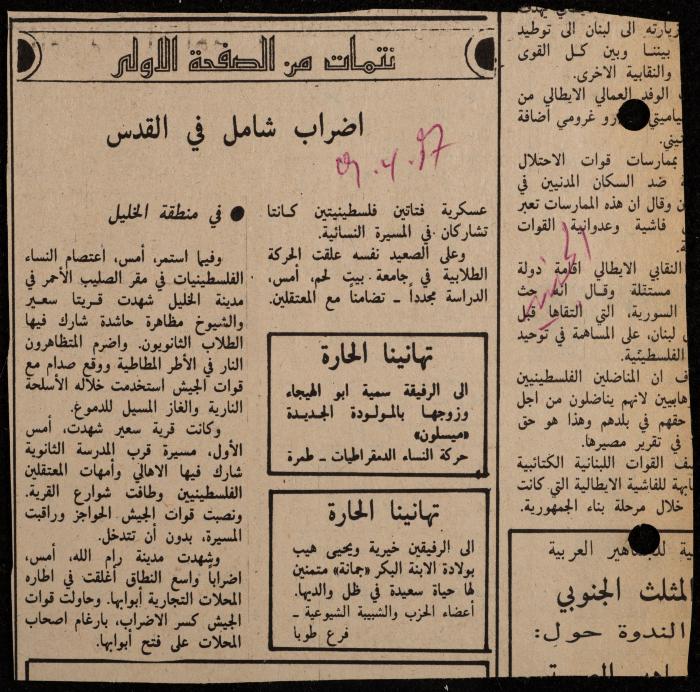 نتمات من الصفحة الاولى
اضراب شامل في القدس
9.4.87
عسكرية فتاتين فلسطينيتين كانتا
تشاركان في المسيرة النسائية.
وعلى الصعيد نفسه علقت الحركة
الطلابية في جامعة بيت لحم، أمس،
الدراسة مجدداً ــ تضامناً مع المعتقلين.
● في منطقة الخليل
وفيما استمر، أمس، اعتصام النساء
الفلسطينيات في مقر الصليب الأحمر في
مدينة الخليل شهدت قريتا سعير
والشيوخ مظاهرة حاشدة شارك فيها
الطلاب الثانويون. واضرم المتظاهرون
النار في الأطر المطاطية ووقع صدام مع
قوات الجيش استخدمت خلاله الأسلحة
النارية والغاز المسيل للدموع.
وكانت قرية سعير شهدت، أمس
الأول، مسيرة قرب المدرسة الثانوية
شارك فيها الاهالي وأمهات المعتقلين
الفلسطينيين وطافت شوارع القرية.
ونصبت قوات الجيش الحواجز وراقبت
المسيرة، بدون أن تتدخل.
وشهدت مدينة رام الله، أمس،
اضرابا واسع النطاق أغلقت في اطاره
المحلات التجارية أبوابها. وحاولت قوات
الجيش كسر الاضراب، بارغام اصحاب
المحلات على فتح أبوابها.
تهانينا الحارة
الى الرفيقة سمية ابو الهيجاء
وزوجها بالمولودة الجديدة
«ميسلون»
حركة النساء الدمقراطيات ــ طمرة
تهانينا الحارة
الى الرفيقين خيرية ويحيى هيب
بولادة الابنة البكر «جمانة» متمنين
لها حياة سعيدة في ظل والديها.
أعضاء الحزب والشبيبة الشيوعية ــ
فرع طوبا
زيارته الى لبنان الى توطيد
بيننا وبين كل القوى
والنقابية الاخرى.
الوفد العمالي الايطالي من
غرومي اضافة
بممارسات قوات الاحتلال
ضد السكان المدنيين في
وقال ان هذه الممارسات تعبر
فاشية وعدوانية القوات
النقابي الايطالي اقامة دولة
مستقلة وقال انه حث
السورية، التي التقاها قبل
لبنان، على المساهمة في توحيد
الفلسطينية.
ان المناضلين الفلسطينيين
لانهم يناضلون من اجل
حقهم في بلدهم وهذا هو حق
في تقرير مصيرها.
القوات اللبنانية الكتائبية
للفاشية الايطالية التي كانت
خلال مرحلة بناء الجمهورية.
العربية
المثلث الجنوبي
الندوة حول: